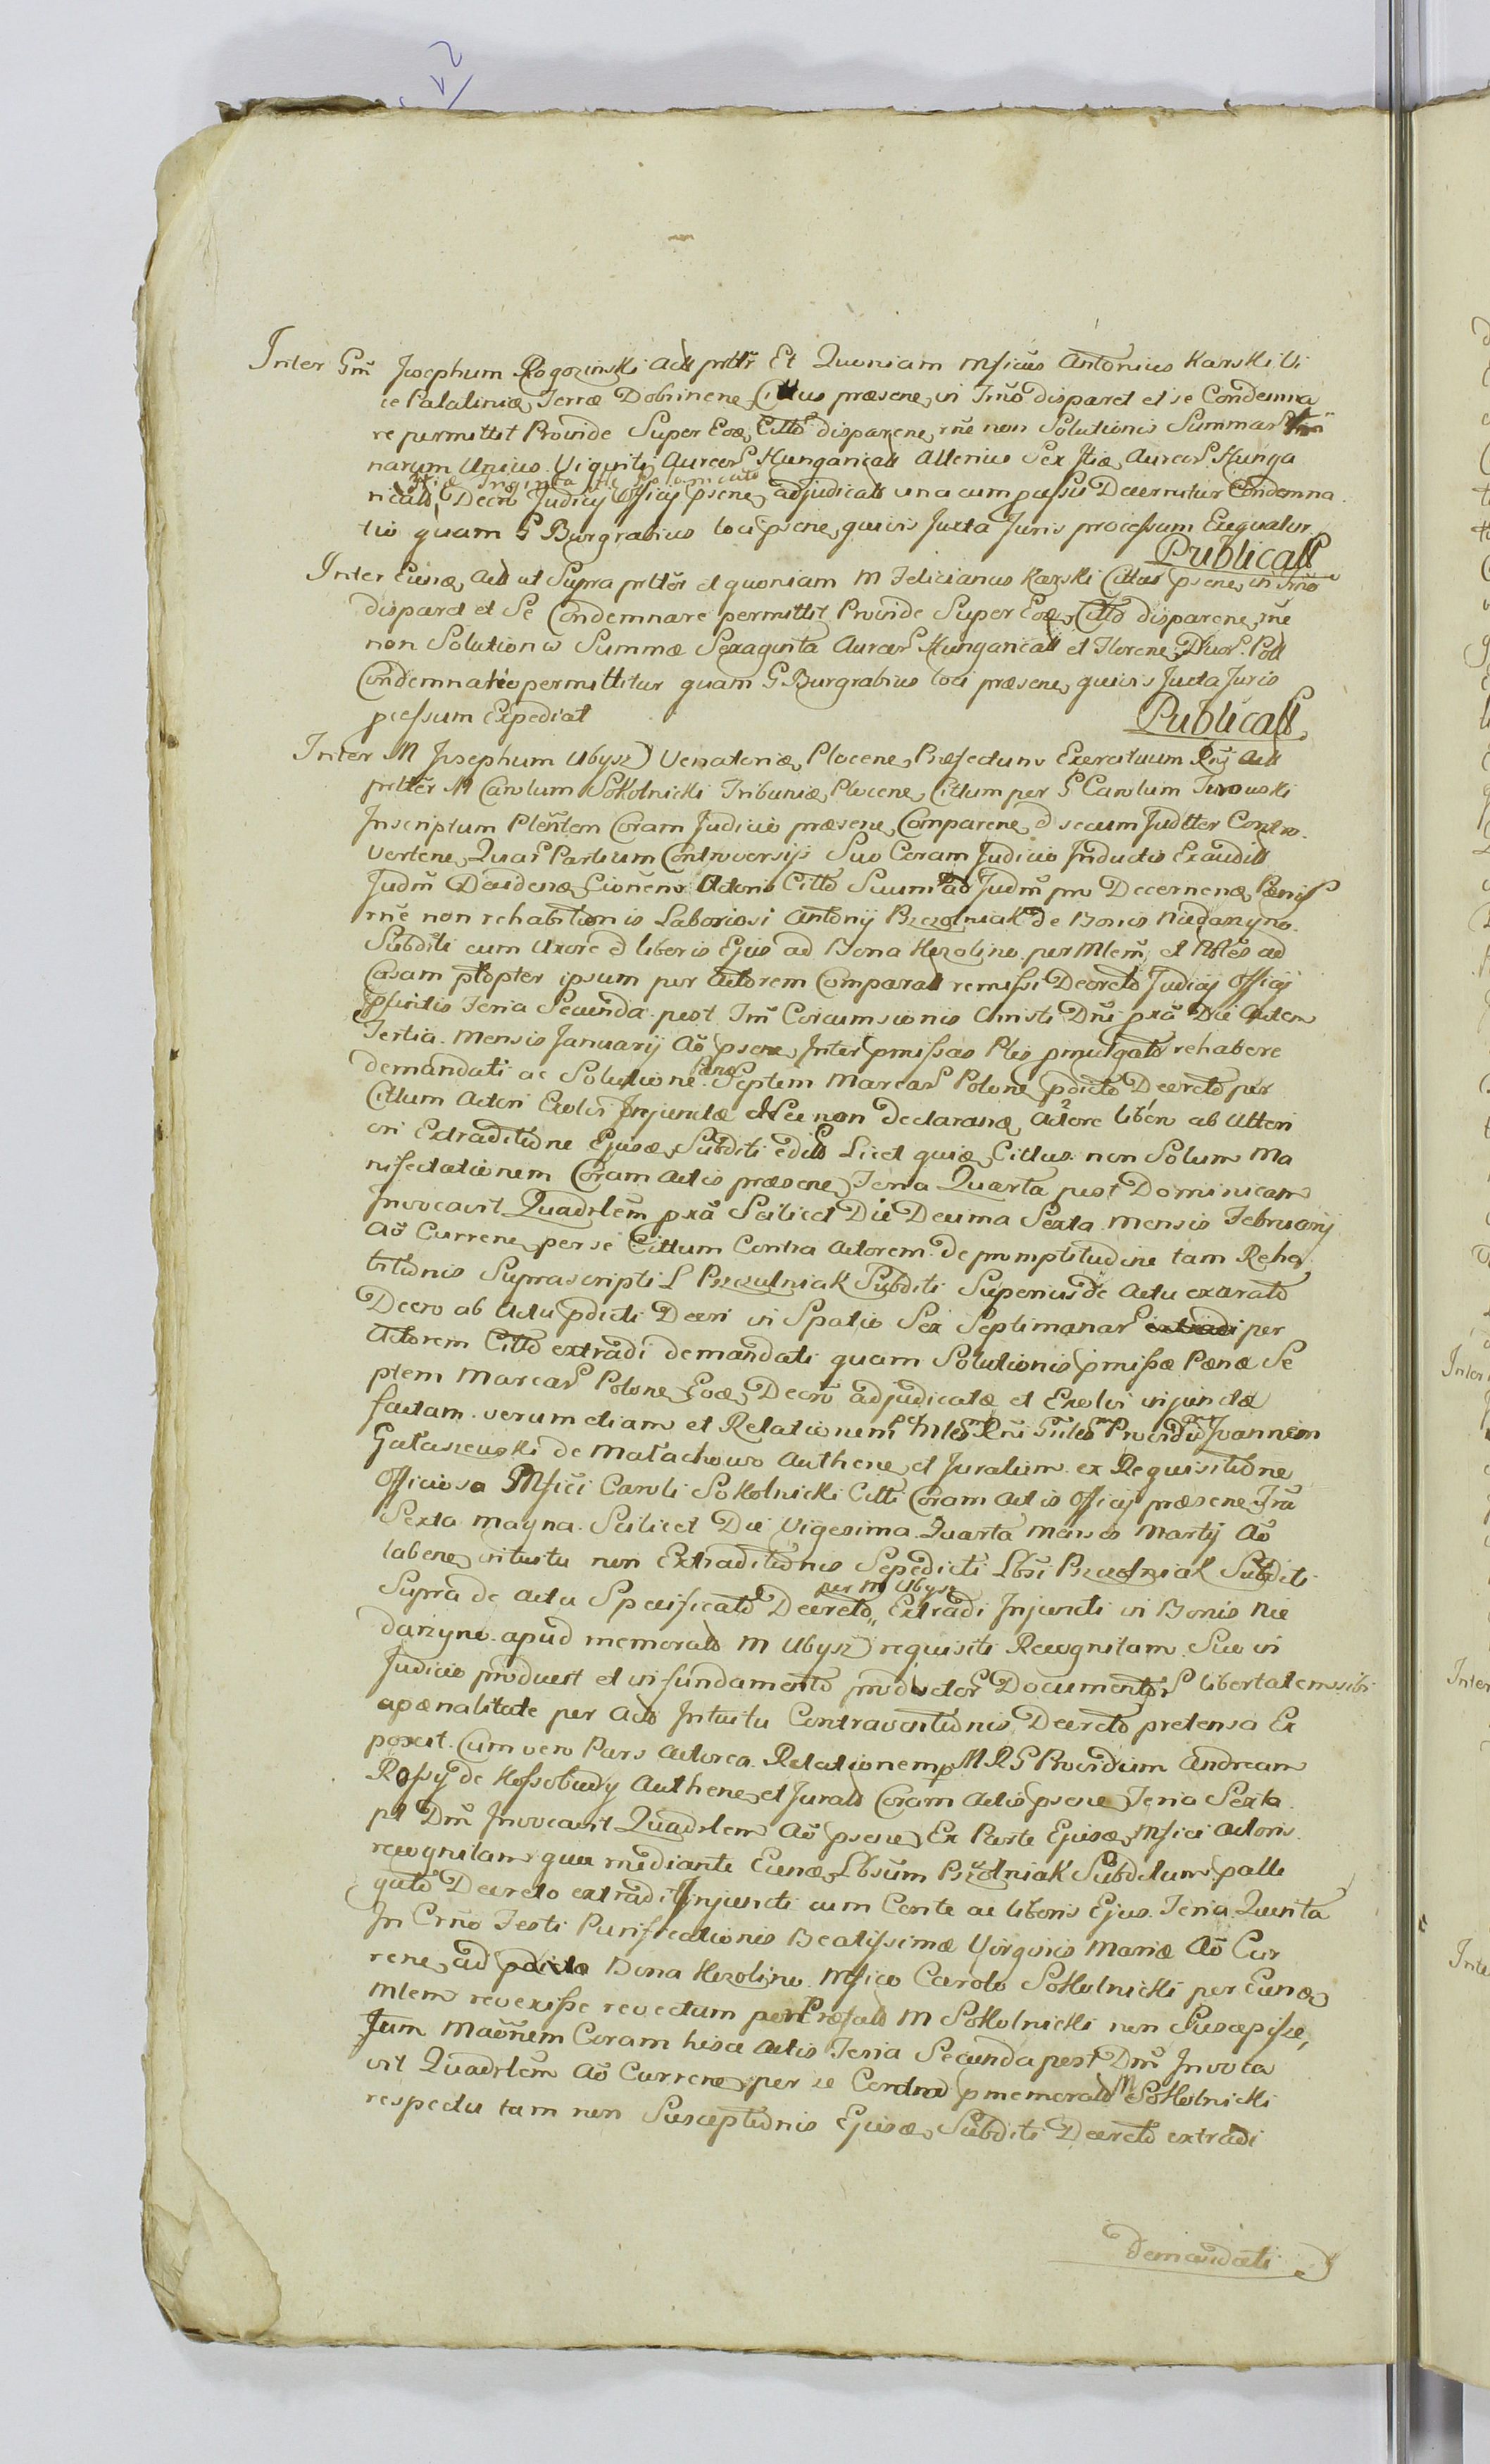 Inter Gm Josephum Rogozinski Act prttr Et Quoniam Mficus Antonius Karski Vi
ce Palatiniæ Terræ Dobrinen Cittus præsen in Trno disparet et se Condemna
re permittit Proinde Super Eod Citto disparen rne non Solutionis Summar
narum Unius Viginti Aureor Hungaricall Alterius Sex Aureor Hunga
ricall Decro Judicij Officij psen adjudicall una cum pœnis Decernitur Condemna
tio quam G Burgrabius loci psen quivis Juxta Juris processum Exequatur
Publicall
Inter Eund Act ut Supra prttor et quoniam M Felicianus Karski Cittus psen in Trno
disparet et Se Condemnare permittit Proinde Super Eod Citto disparen rne
non Solutionis Summæ Sexaginta Aureor Hungaricall et Floren Duor Poll
Condemnatio permittitur quam G Burgrabius loci præsen quivis Juxta Juris
pcessum Expediat
Publicall
Inter M Josephum Ubysz Venatoriæ Plocen Præfectum Exercituum Rni Act
prtter M Carolum Sokolnicki Tribuniæ Plocen Cittum per G Carolum Turowski
Inscriptum Plentem Coram Judicio præsen Comparen & secum Judtter Contro
verten Quar Partium Controversijs Suo Coram Judicio Inductis Exauditt
Judm Daiden Cionem Actoris Citto Suum ad Judm pro Decernen Pœnis
rne non rehabitionis Laboriosi Antonij Brzozolniak de Bonis Niedarzyno
Subditi cum Uxore & liberis Ejus ad Bona Kozolino per Mlem et Nbles ad
Casam ptopter ipsum per Actorem Comparatt remissi Decreto Judicij Officij
psentis Feria Secunda post Fm Circumcionis Christi Dni pxa Die Autem
Tertia Mensis Januarij Ao psen Inter pmissas Ptes pmulgato rehabere
demandati ac Solutione Pæna Septem Marcar Polon pdicto Decreto per
Cittum Actori Exolvi Injunctæ Nec non declaran Actore libero ab Ulteri
ori Extraditione Ejusd Subditi Licet quid Cittus non Solum Ma
nifestationem Coram Actis præsen Feria Quarta post Dominicam
Invocavit Quadrlem pxa Scilicet Die Decima Sexta Mensis Februarij
Ao Curren per se Cittum Contra Actorem de promptitudine tam Reha
bitionis Suprascripti L Brzozolniak Subditi Superius de Actu exarato
Decro ab Actu pdicti Decri in Spatio Sex Septimanar per
Actorem Citto extradi demandati quam Solutionis pmissæ Pænæ Se
ptem Marcar Polon Eod Decro adjudicatæ et Exolvi injunctæ
factam verum etiam et Relationem Providum Joannem
Gałaszewski de Małachowo Authen et Juratum ex Requisitione
Officiosa Mfici Caroli Sokolnicki Citti Coram Actis Officij præsen Fria
Sexta Magna Scilicet Die Vigesima Quarta Mensis Martij Ao
laben intuitu non Extraditionis Sepedicti Lbsi Brzozolniak Subditi
per M Ubysz
Supra de Actu Specificato Decreto Extradi Injuncti in Bonis Nie
darzyno apud memoratt M Ubysz requisiti Recognitam Suo in
Judicio produxit et in fundamento productor Documentor libertatem sibi
apænalitate per Act Intuitu Contraventionis Decreto pretensa Ex
poscit Cum vero Pars Actorea Relationem p M R G Providum Andream
Rossy de Kossobudy Authen et Juratt Coram Actis psen Feria Sexta
pt Dm Invocavit Quadrlem Ao psen Ex Parte Ejusd Mfici Actoris
recognitam qua mediante Eund Lbsum Brzozolniak Subditum palle
gato Decreto extradi Injuncti cum Conte ac liberis Ejus Feria Quinta
In Crno Festi Purificationis Beatissimæ Virginis Mariæ Ao Cur
ren ad pdicta Bona Kozolino Mfico Carolo Sokolnicki per Eund
Mlem revexisse revectum per Præfatt M Sokolnicki non Suscepisse,
Tum Maonem Coram hisce Actis Feria Secunda post Dm Invoca
vit Quadrlem Ao Curren per se Contra pmemoratt M Sokolnicki
respectu tam non Susceptionis Ejusd Subditi Decreto extradi
Demandati